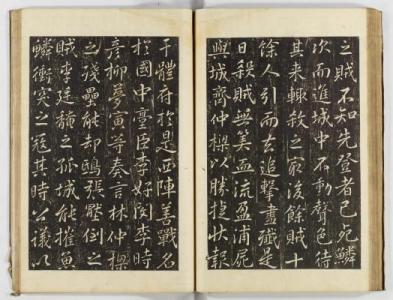 之賊不知先登者已死鱗
次而進城中不動聲色待
其來輙殺之最後餘賊十
餘人引而去追擊盡殱是
日殺賊無筭血流盈浦屍
與城齊仲樑以勝捷狀報
于體府於是西陣善戰名
於國中臺臣李好閔李時
彦柳夢寅等奏言林仲樑
之殘壘能却鴟張壓倒之
賊李廷馣之孤城能摧魚
鱗衝突之寇其時公議以